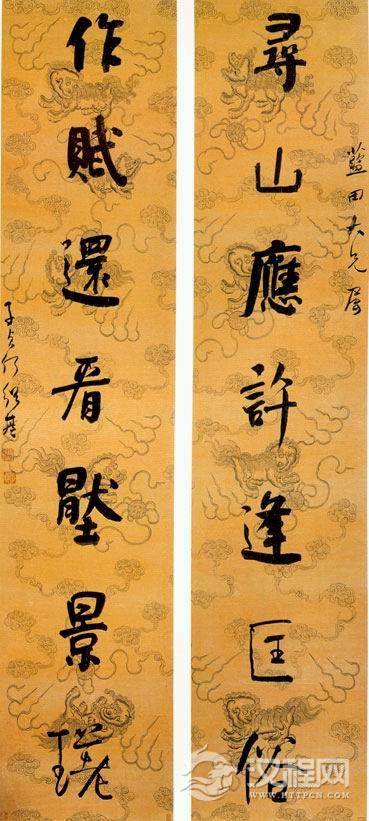 尋山應許逢匡俗
藍田大兄屬
作賦還看壓景瑳
子貞何紹基
汉程网
WWW.HTTPCN.COM